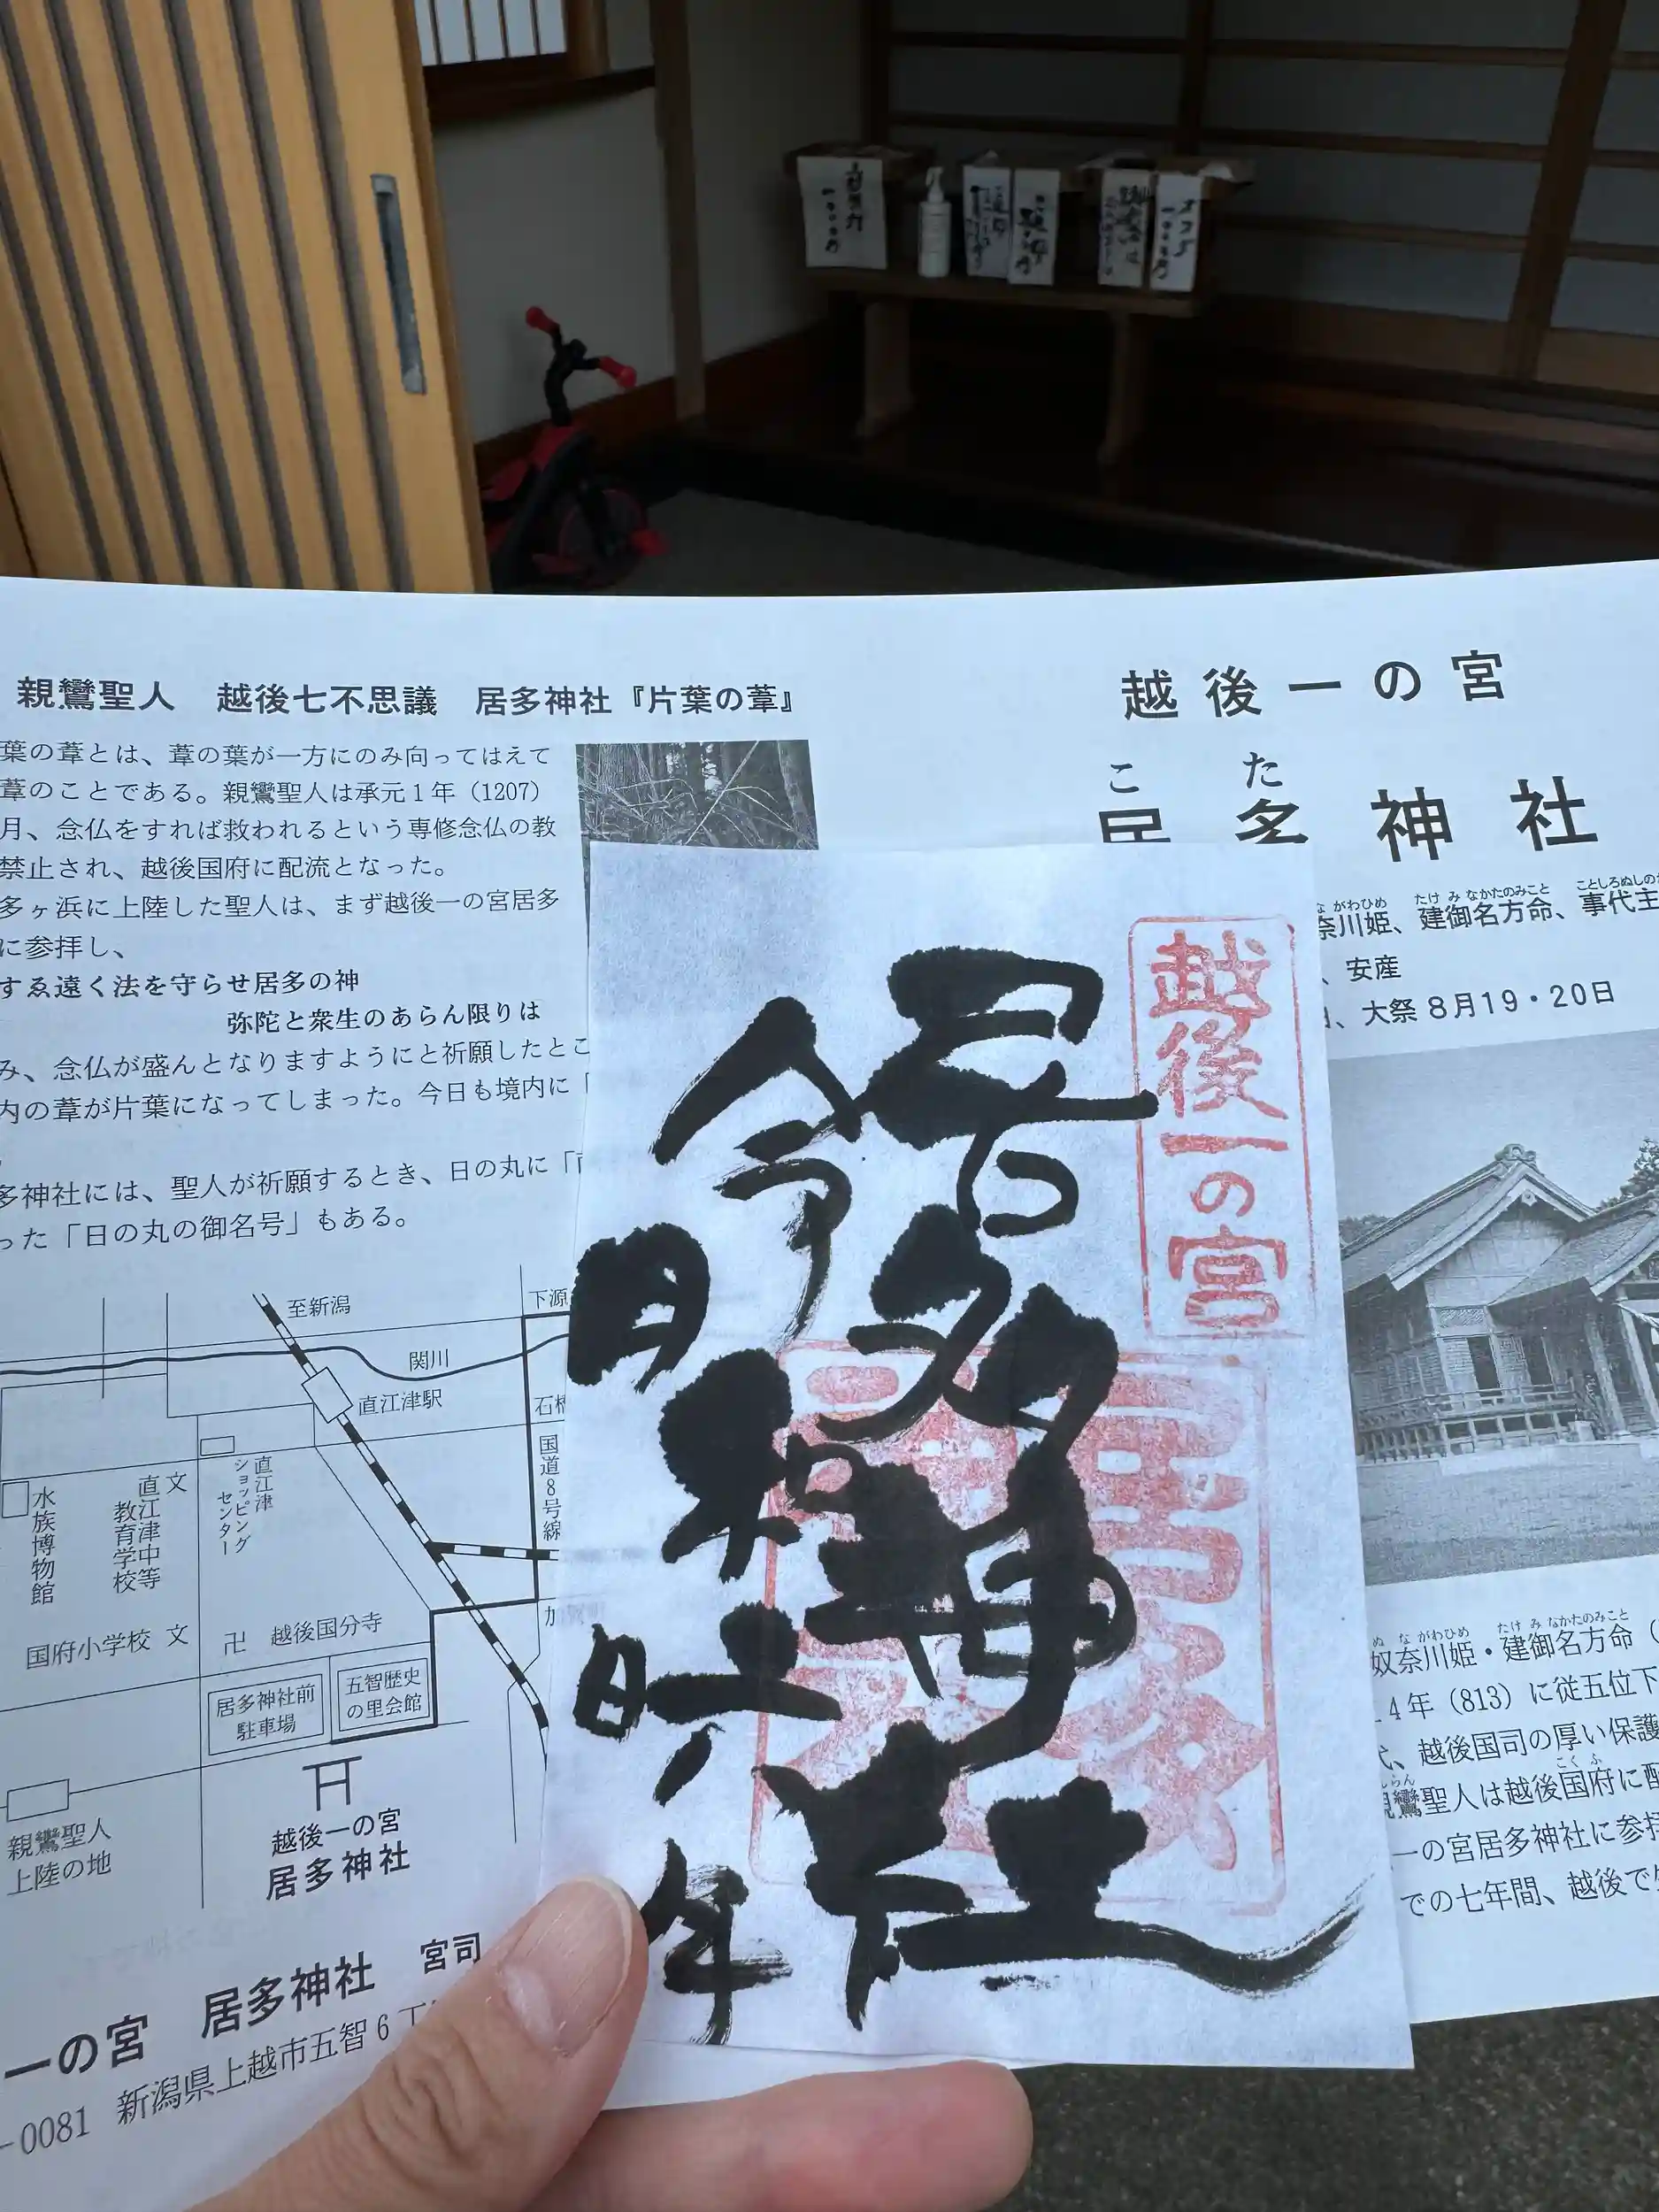 一〇〇〇円
一〇〇〇円
親鸞聖人　越後七不思議　居多神社『片葉の葦』
葉の葦とは、葦の葉が一方にのみ向ってはえて
葦のことである。親鸞聖人は承元1年（1207）
月、念仏をすれば救われるという専修念仏の教
禁止され、越後国府に配流となった。
多ヶ浜に上陸した聖人は、まず越後一の宮居多
に参拝し、
すゑ遠く法を守らせ居多の神
弥陀と衆生のあらん限りは
み、念仏が盛んとなりますようにと祈願したとこ
内の葦が片葉になってしまった。今日も境内に「
多神社には、聖人が祈願するとき、日の丸に「
った「日の丸の御名号」もある。
至新潟
下源
関川
直江津駅
石橋
国道8号線
直江津
ショッピング
センター
文
直江津中等
教育学校
水族博物館
国府小学校 文
卍 越後国分寺
加
居多神社前
駐車場
五智歴史
の里会館
親鸞聖人
上陸の地
越後一の宮
居多神社
一の宮　居多神社　宮司
-0081　新潟県上越市五智6丁
越後一の宮
こ　た
居多神社
な がわひめ　たけ み なかたのみこと　ことしろぬしの
奈川姫、建御名方命、事代主
、安産
、大祭8月19・20日
ぬ な がわひめ　たけ み なかたのみこと
奴奈川姫・建御名方命（
4年（813）に従五位下
、越後国司の厚い保護
しらん　こくふ
鸞聖人は越後国府に配
一の宮居多神社に参拝
での七年間、越後で
越後一の宮
居多神社
居多神社
令和
年